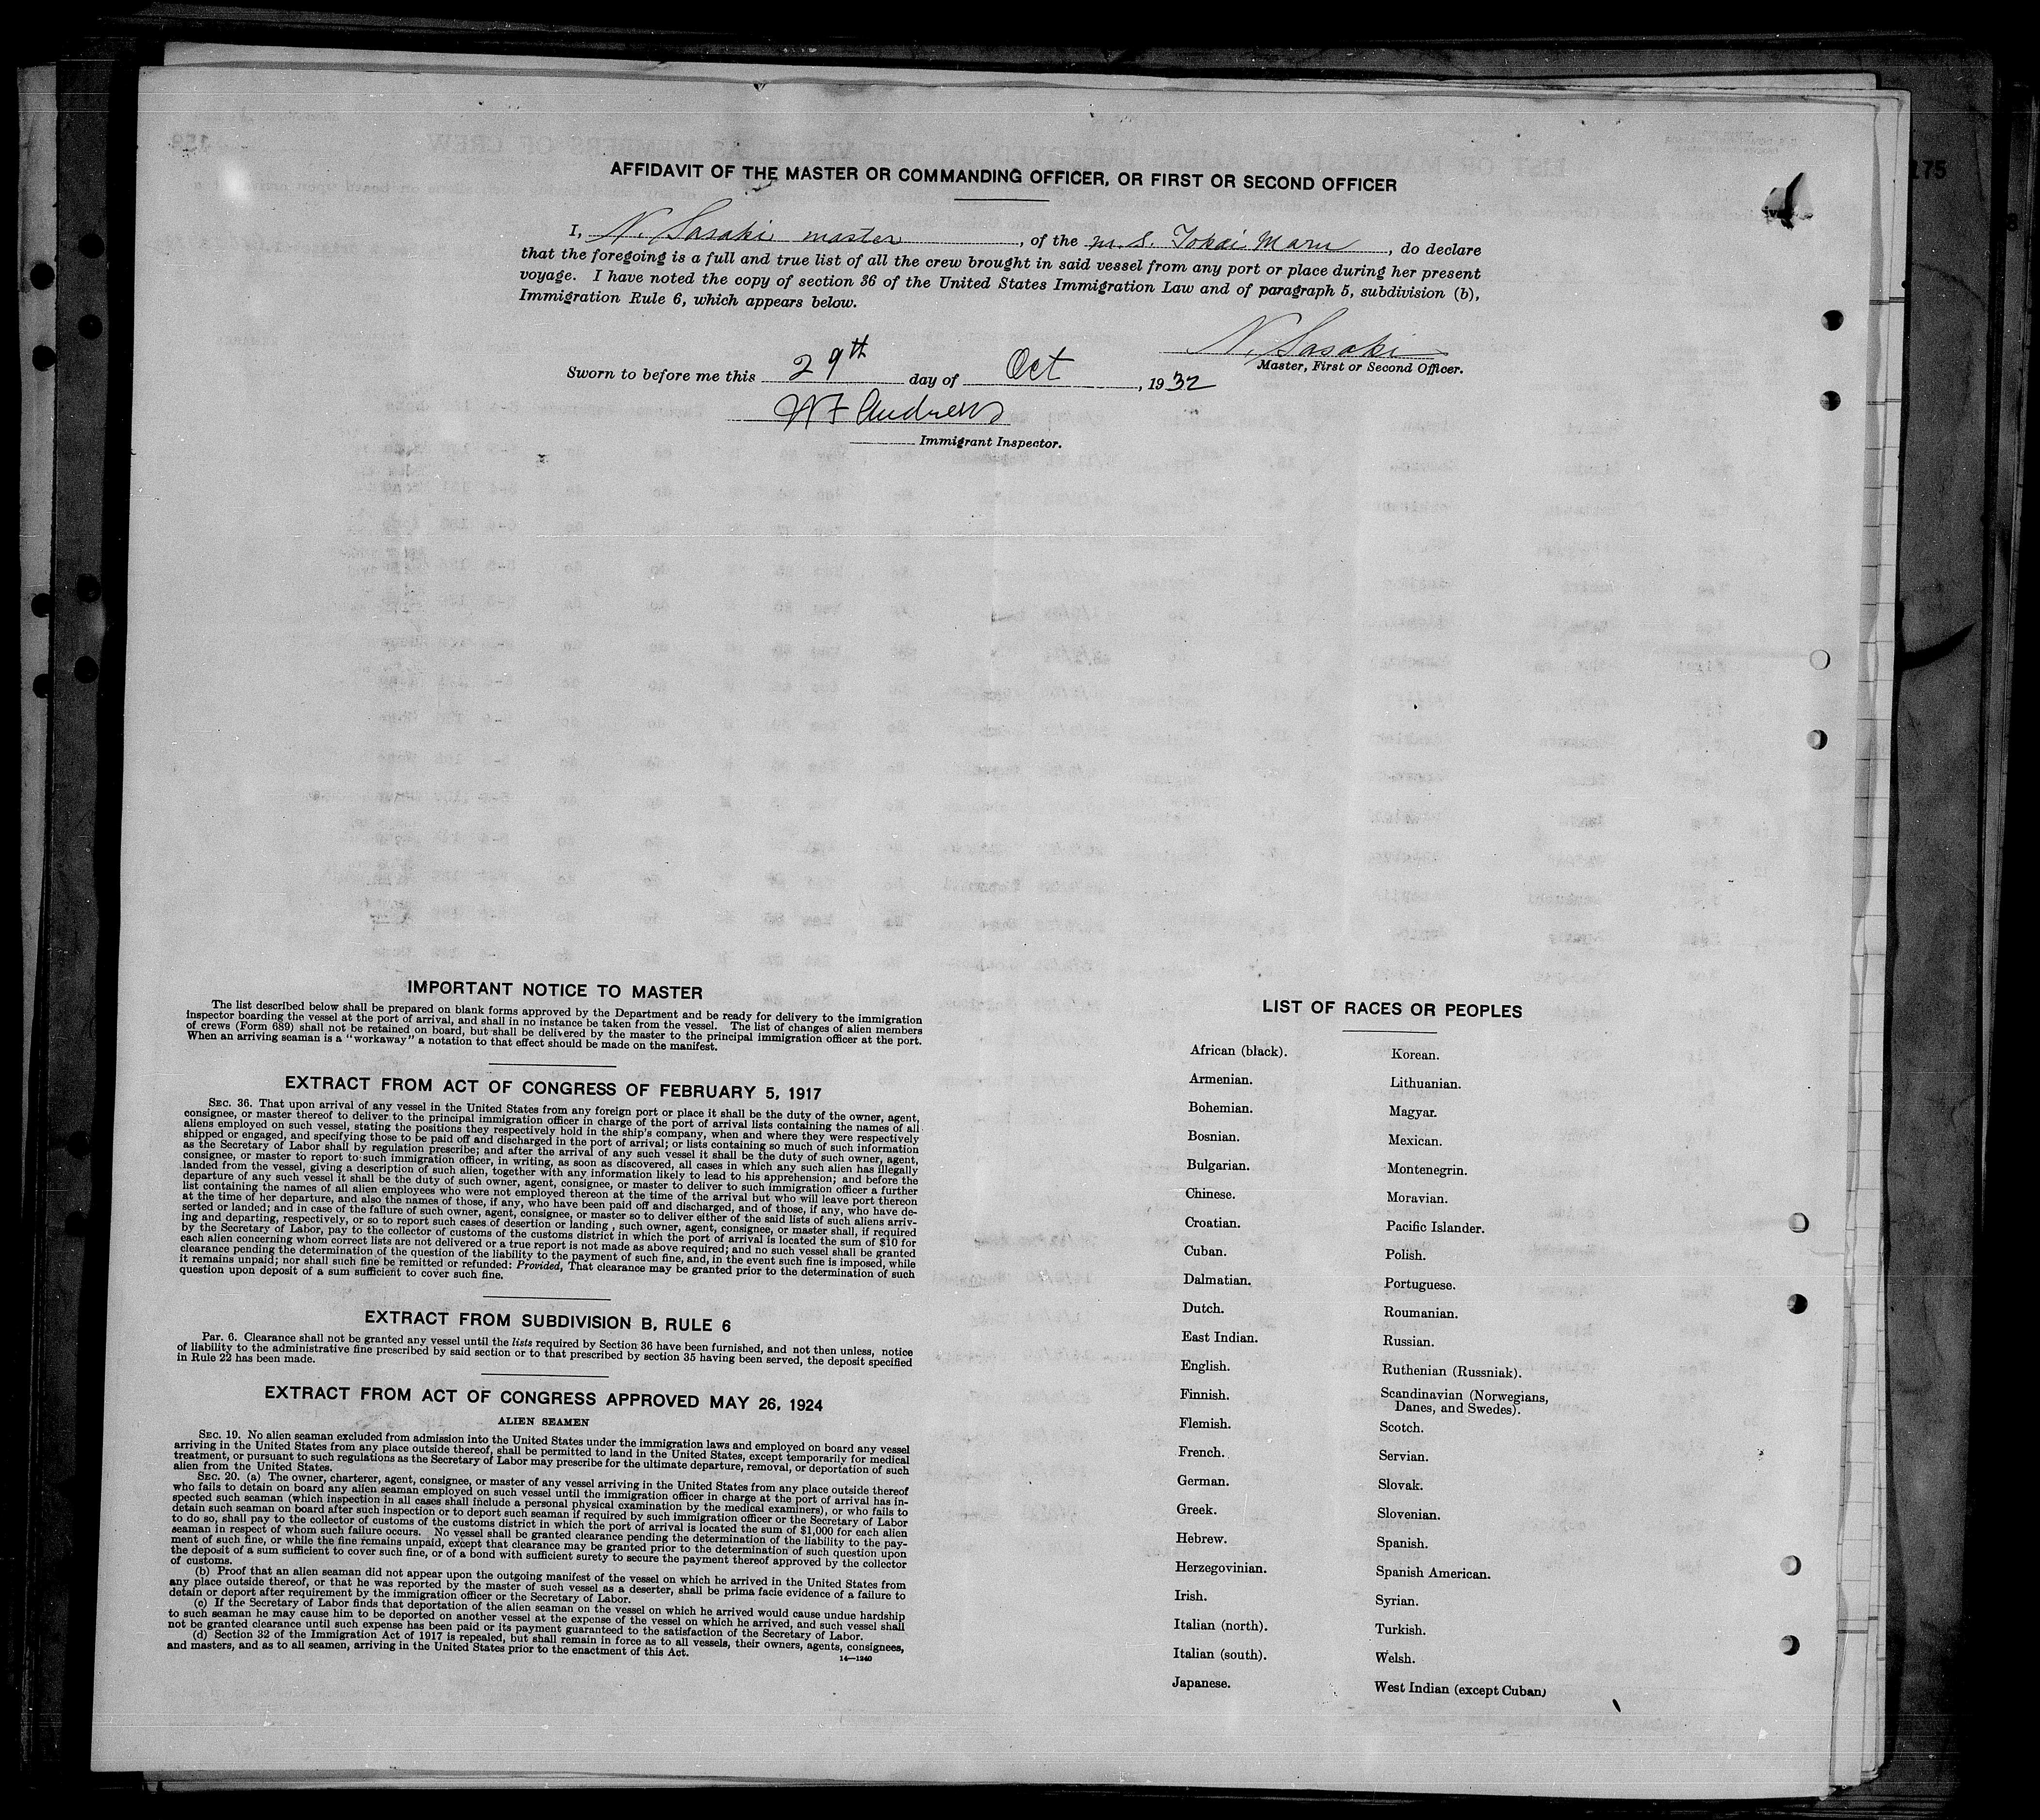 AFFIDAVIT OF THE MASTER OR COMMANDING OFFICER, OR FIRST OR SECOND OFFICER
I, N. Sasaki master, of the m. s. Tokai Maru, do declare
that the foregoing is a full and true list of all the crew brought in said vessel from any port or place during her present
voyage. I have noted the copy of section 36 of the United States Immigration Law and of paragraph 5, subdivision (b),
Immigration Rule 6, which appears below.
N. Sasaki
Master, First or Second Officer.
Sworn to before me this 29th day of Oct, 1932
W F Andrews
Immigrant Inspector.
175
IMPORTANT NOTICE TO MASTER
The list described below shall be prepared on blank forms approved by the Department and be ready for delivery to the immigration
inspector boarding the vessel at the port of arrival, and shall in no instance be taken from the vessel. The list of changes of alien members
of crews (Form 689) shall not be retained on board, but shall be delivered by the master to the principal immigration officer at the port.
When an arriving seaman is a "workaway" a notation to that effect should be made on the manifest.
EXTRACT FROM ACT OF CONGRESS OF FEBRUARY 5, 1917
SEC. 36. That upon arrival of any vessel in the United States from any foreign port or place it shall be the duty of the owner, agent,
consignee, or master thereof to deliver to the principal immigration officer in charge of the port of arrival lists containing the names of all
aliens employed on such vessel, stating the positions they respectively hold in the ship's company, when and where they were respectively
shipped or engaged, and specifying those to be paid off and discharged in the port of arrival; or lists containing so much of such information
as the Secretary of Labor shall by regulation prescribe; and after the arrival of any such vessel it shall be the duty of such owner, agent,
consignee, or master to report to such immigration officer, in writing, as soon as discovered, all cases in which any such alien has illegally
landed from the vessel, giving a description of such alien, together with any information likely to lead to his apprehension; and before the
departure of any such vessel it shall be the duty of such owner, agent, consignee, or master to deliver to such immigration officer a further
list containing the names of all alien employees who were not employed thereon at the time of the arrival but who will leave port thereon
at the time of her departure, and also the names of those, if any, who have been paid off and discharged, and of those, if any, who have de-
serted or landed; and in case of the failure of such owner, agent, consignee, or master so to deliver either of the said lists of such aliens arriv-
ing and departing, respectively, or so to report such cases of desertion or landing, such owner, agent, consignee, or master shall, if required
by the Secretary of Labor, pay to the collector of customs of the customs district in which the port of arrival is located the sum of $10 for
each alien concerning whom correct lists are not delivered or a true report is not made as above required; and no such vessel shall be granted
clearance pending the determination of the question of the liability to the payment of such fine, and, in the event such fine is imposed, while
it remains unpaid; nor shall such fine be remitted or refunded: Provided, That clearance may be granted prior to the determination of such
question upon deposit of a sum sufficient to cover such fine.
EXTRACT FROM SUBDIVISION B, RULE 6
Par. 6. Clearance shall not be granted any vessel until the lists required by Section 36 have been furnished, and not then unless, notice
of liability to the administrative fine prescribed by said section or to that prescribed by section 35 having been served, the deposit specified
in Rule 22 has been made.
EXTRACT FROM ACT OF CONGRESS APPROVED MAY 26, 1924
ALIEN SEAMEN
SEC. 19. No alien seaman excluded from admission into the United States under the immigration laws and employed on board any vessel
arriving in the United States from any place outside thereof, shall be permitted to land in the United States, except temporarily for medical
treatment, or pursuant to such regulations as the Secretary of Labor may prescribe for the ultimate departure, removal, or deportation of such
alien from the United States.
SEC. 20. (a) The owner, charterer, agent, consignee, or master of any vessel arriving in the United States from any place outside thereof
who fails to detain on board any alien seaman employed on such vessel until the immigration officer in charge at the port of arrival has in-
spected such seaman (which inspection in all cases shall include a personal physical examination by the medical examiners), or who fails to
detain such seaman on board after such inspection or to deport such seaman if required by such immigration officer or the Secretary of Labor
to do so, shall pay to the collector of customs of the customs district in which the port of arrival is located the sum of $1,000 for each alien
seaman in respect of whom such failure occurs. No vessel shall be granted clearance pending the determination of the liability to the pay-
ment of such fine, or while the fine remains unpaid, except that clearance may be granted prior to the determination of such question upon
the deposit of a sum sufficient to cover such fine, or of a bond with sufficient surety to secure the payment thereof approved by the collector
of customs.
(b) Proof that an alien seaman did not appear upon the outgoing manifest of the vessel on which he arrived in the United States from
any place outside thereof, or that he was reported by the master of such vessel as a deserter, shall be prima facie evidence of a failure to
detain or deport after requirement by the immigration officer or the Secretary of Labor.
(c) If the Secretary of Labor finds that deportation of the alien seaman on the vessel on which he arrived would cause undue hardship
to such seaman he may cause him to be deported on another vessel at the expense of the vessel on which he arrived, and such vessel shall
not be granted clearance until such expense has been paid or its payment guaranteed to the satisfaction of the Secretary of Labor.
(d) Section 32 of the Immigration Act of 1917 is repealed, but shall remain in force as to all vessels, their owners, agents, consignees,
and masters, and as to all seamen, arriving in the United States prior to the enactment of this Act.
14—1240
LIST OF RACES OR PEOPLES
African (black).
Armenian.
Bohemian.
Bosnian.
Bulgarian.
Chinese.
Croatian.
Cuban.
Dalmatian.
Dutch.
East Indian.
English.
Finnish.
Flemish.
French.
German.
Greek.
Hebrew.
Herzegovinian.
Irish.
Italian (north).
Italian (south).
Japanese.
Korean.
Lithuanian.
Magyar.
Mexican.
Montenegrin.
Moravian.
Pacific Islander.
Polish.
Portuguese.
Roumanian.
Russian.
Ruthenian (Russniak).
Scandinavian (Norwegians,
Danes, and Swedes).
Scotch.
Servian.
Slovak.
Slovenian.
Spanish.
Spanish American.
Syrian.
Turkish.
Welsh.
West Indian (except Cuban)